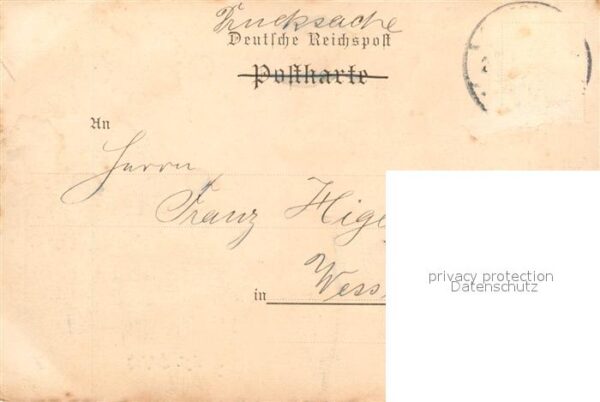 Drucksache
Deutsche Reichspost
Postkarte
An
Herrn
Franz Hige
in Wess
privacy protection
Datenschutz